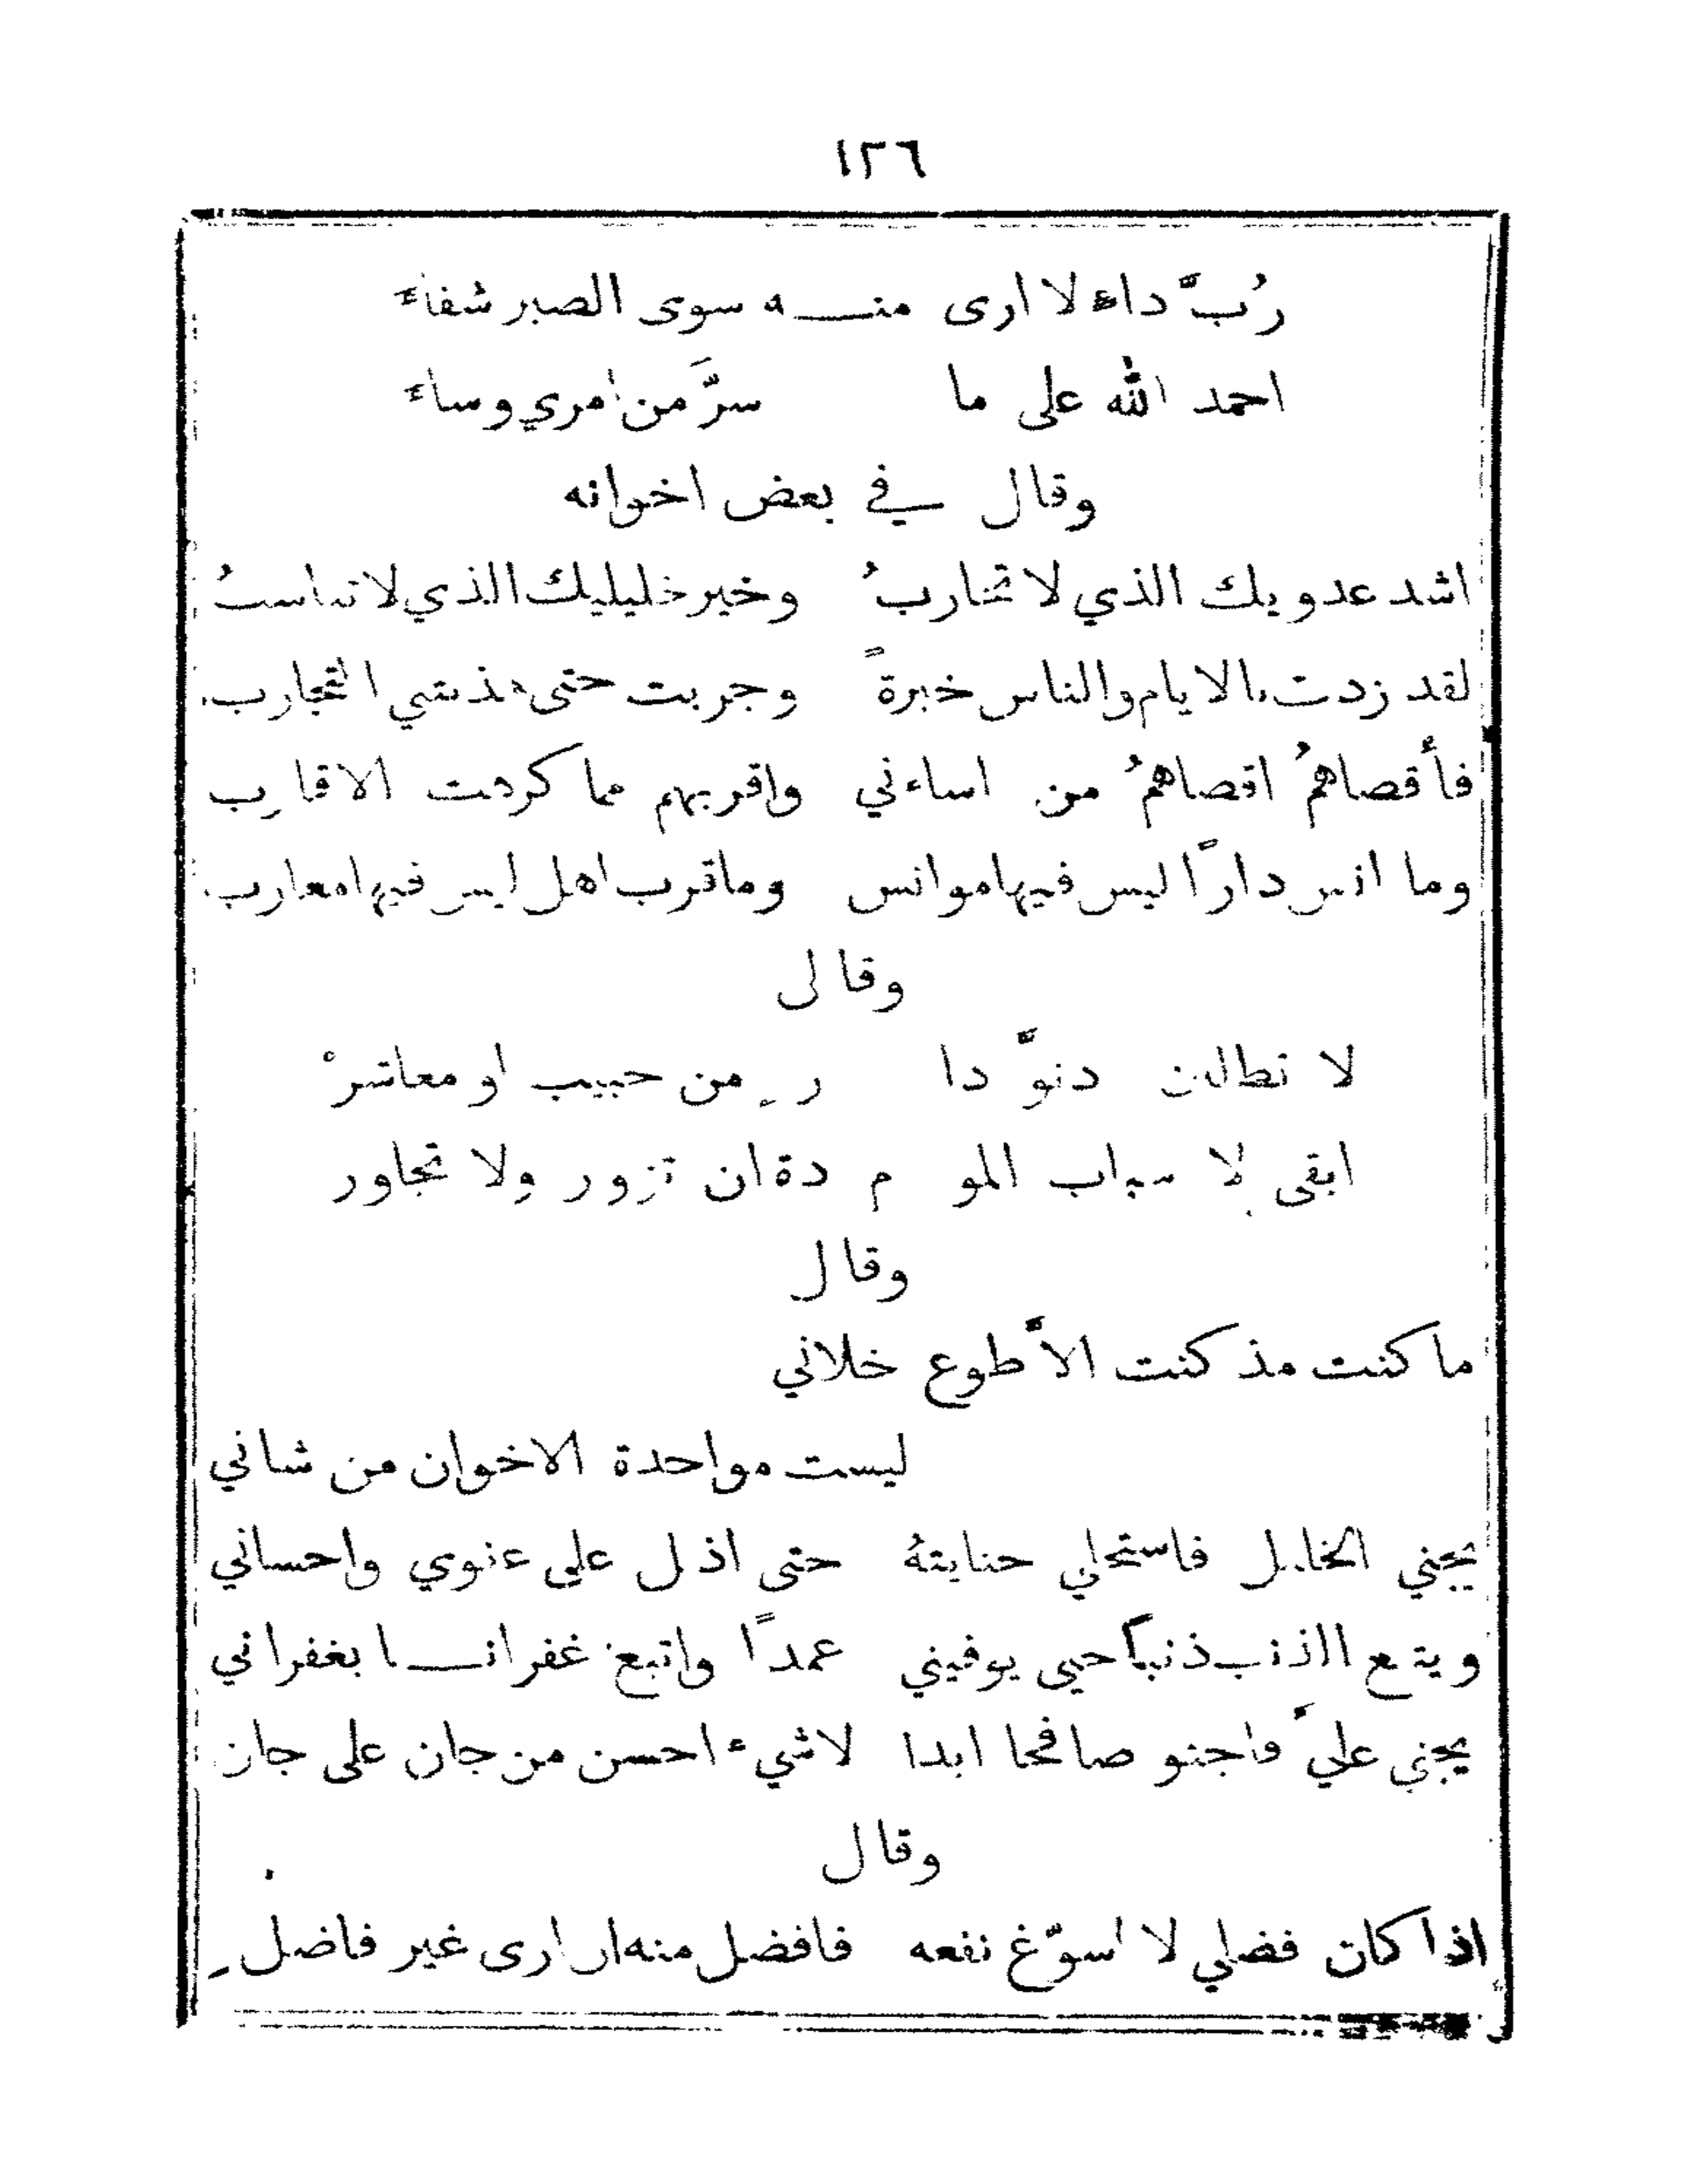 ١٢٦
رُبَّ داء لا ارى منـــه سوى الصبر شفاء
احمد الله على ما سرَّ من امري وساء
وقال في بعض اخوانه
اشد عدويك الذي لا تحاربُ وخير خليليك الذي لا تناسبُ
لقد زدت بالايام والناس خبرةً وجربت حتى هذبتني التجارب
فأقصاهمُ اقصاهمُ من اساءتي واقربهم مما كرهت الاقارب
وما انس دارًا ليس فيها موانس وما قرب اهل ليس فيها معارب
وقال
لا تطلبن دنوَّ دا رٍ من حبيب او معاشرْ
ابقى لاسباب المو م دة ان تزور ولا تجاور
وقال
ما كنت مذ كنت الاَّ طوع خلاني
ليست مواحدة الاخوان من شاني
يجني الخليل فاستحلي حنايتهُ حتى اذل على عفوي واحساني
ويتبع الذنب ذنبًا حين يوفيني عمدًا واتبع غفرانـــا بغفراني
يجني عليَّ واجنو صافحا ابدا لا شيء احسن من جان على جان
وقال
اذا كان فضلي لا اسوّغ نفعه فافضل منه ان ارى غير فاضلِ